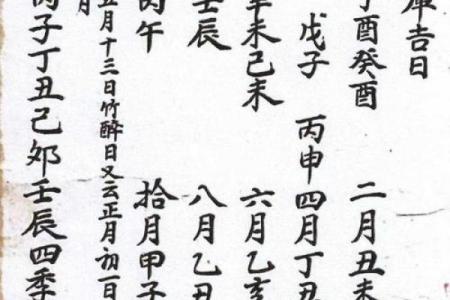 庫吉日
丁酉癸酉 二月丑未
戊子 丙申四月丁丑
辛未己未 六月乙亥
壬辰 八月乙丑
丙午 拾月甲子
五月十三日竹醉日又云正月初一日
月
丙子丁丑己夘壬辰四季